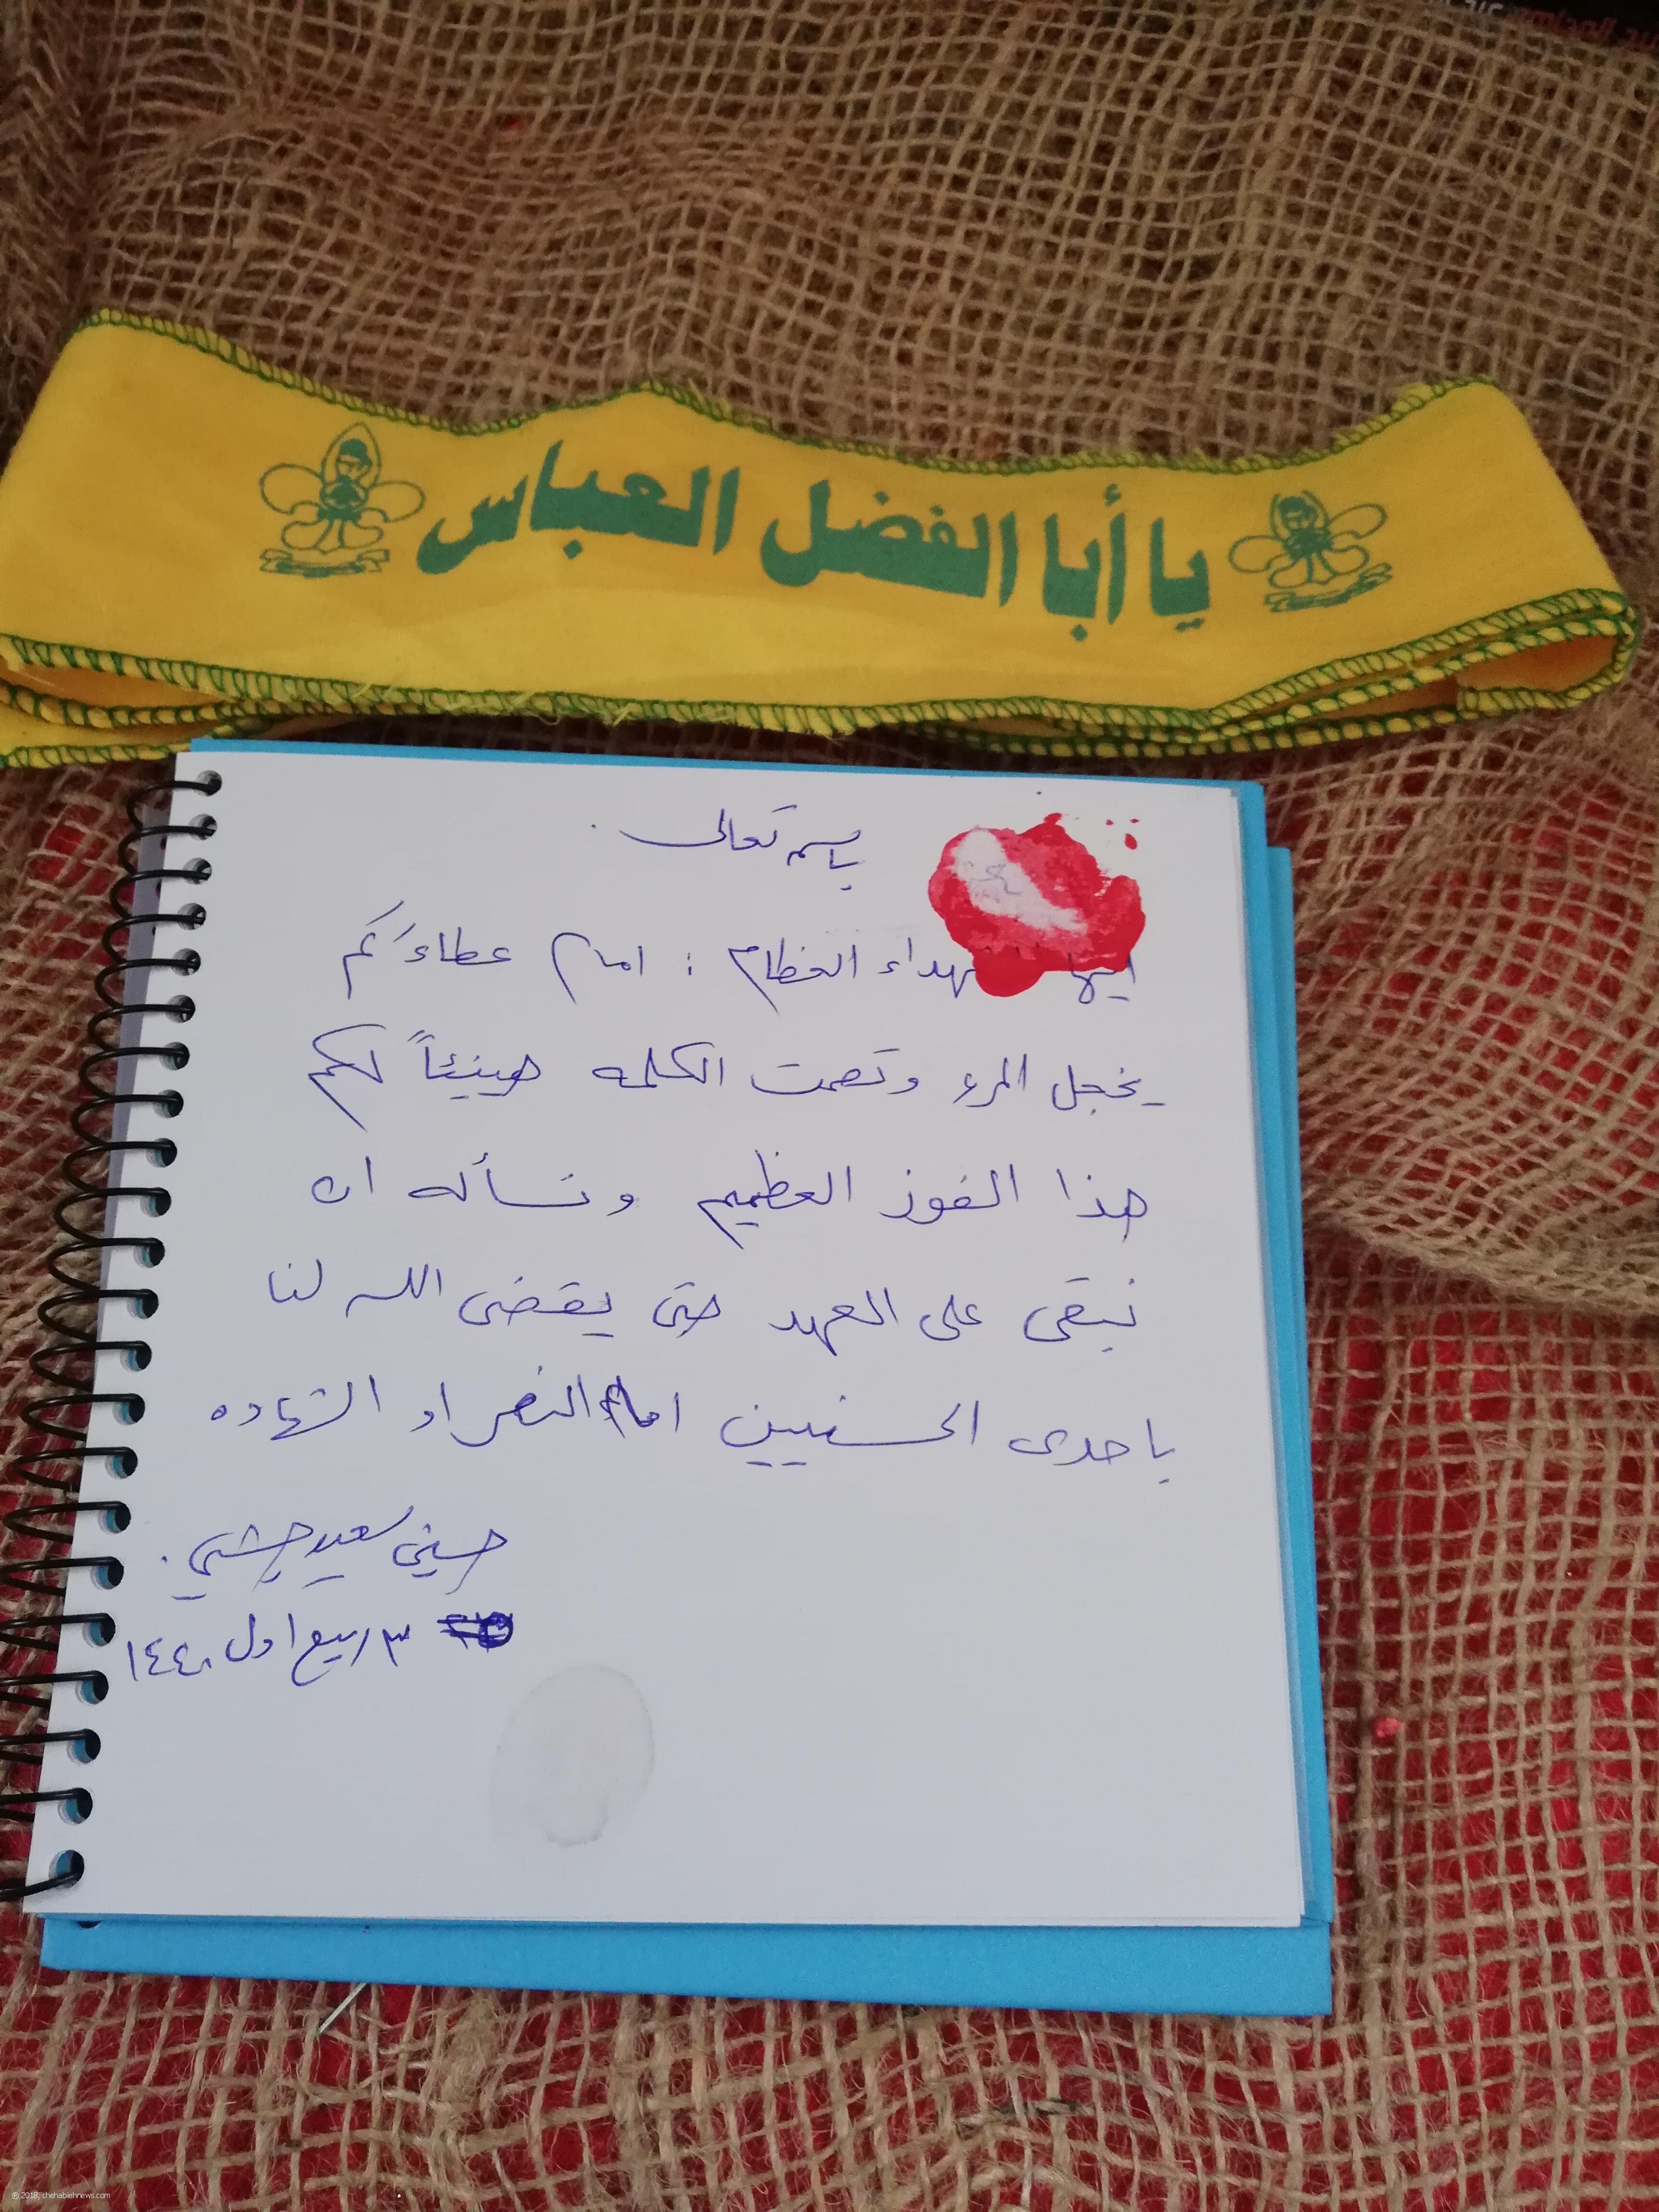 يا أبا الفضل العباس
باسمه تعالى
ايها الشهداء العظام : امام عطاءَكم
يخجل المرء وتصمت الكلمه هنيئاً لكم
هذا الفوز العظيم ونسأله ان
نبقى على العهد حتى يقضي الله لنا
باحدى الحسنيين اما النصر او الشهاده
حسين سعيد
٣ ربيع اول ١٤٤٠
© 2018, chehabiehnews.com